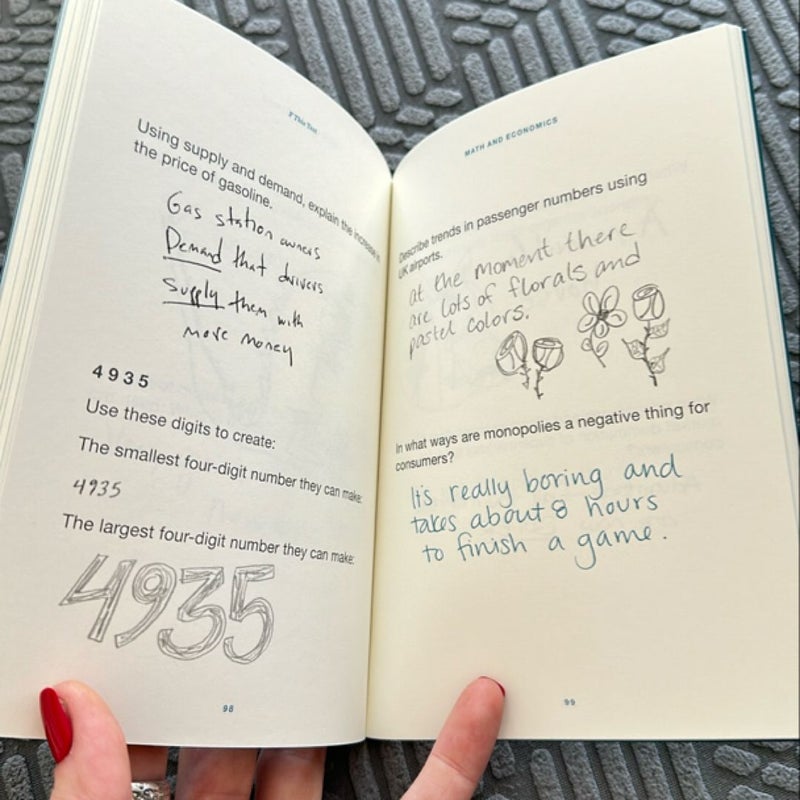 F This Test
Using supply and demand, explain the increase in
the price of gasoline.
Gas station owners
Demand that drivers
Supply them with
more money
4935
Use these digits to create:
The smallest four-digit number they can make:
4935
The largest four-digit number they can make:
4935
98
MATH AND ECONOMICS
Describe trends in passenger numbers using
UK airports.
at the moment there
are lots of florals and
pastel colors.
In what ways are monopolies a negative thing for
consumers?
It's really boring and
takes about 8 hours
to finish a game.
99